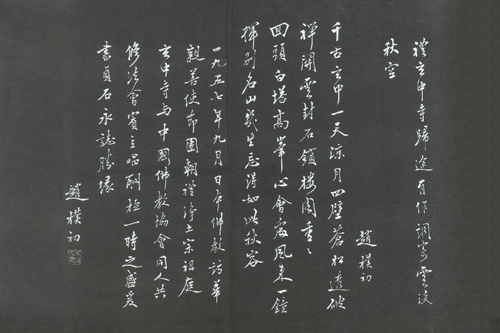 禮玄中寺歸途有作調寄雲淡
秋空
趙樸初
千古玄中一天涼月四壁蒼松透破
禅關雲封石鎖樓閣重々
回頭白塔高峯心會處風來一鐘
揮別名山幾生忘得如此秋容
一九五七年九月日本佛教訪華
親善使節團朝禮淨土宗祖庭
玄中寺与中國佛教協會同人共
修法會賓主唱酬極一時之盛爰
書貞石永誌勝緣
趙樸初